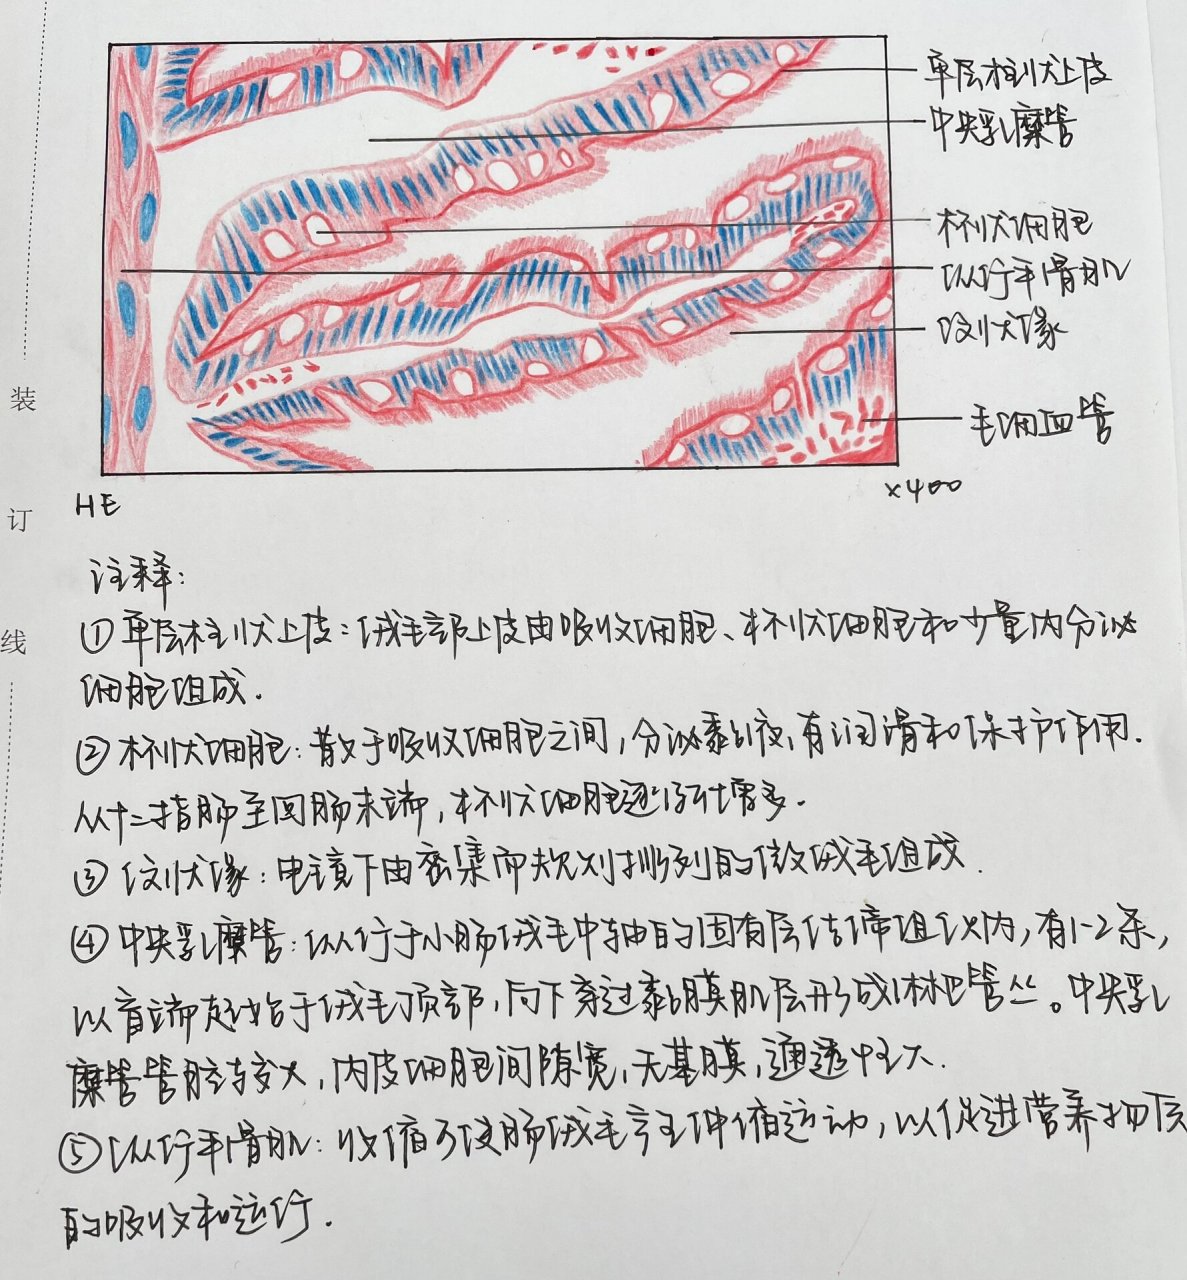 单层柱状上皮
中央乳糜管
杯状细胞
纵行平滑肌
纹状缘
毛细血管
HE
×400
装
订
线
注释:
①单层柱状上皮:绒毛部上皮由吸收细胞、杯状细胞和少量内分泌
细胞组成.
②杯状细胞:散于吸收细胞之间,分泌黏液,有润滑和保护作用.
从十二指肠至回肠末端,杯状细胞逐渐增多.
③纹状缘:电镜下由密集而规则排列的微绒毛组成.
④中央乳糜管:纵行于小肠绒毛中轴的固有层结缔组织内,有1-2条,
以盲端起始于绒毛顶部,向下穿过黏膜肌层形成淋巴管丛。中央乳
糜管管腔较大,内皮细胞间隙宽,无基膜,通透性大.
⑤纵行平滑肌:收缩可使肠绒毛产生伸缩运动,以促进营养物质
的吸收和运行.